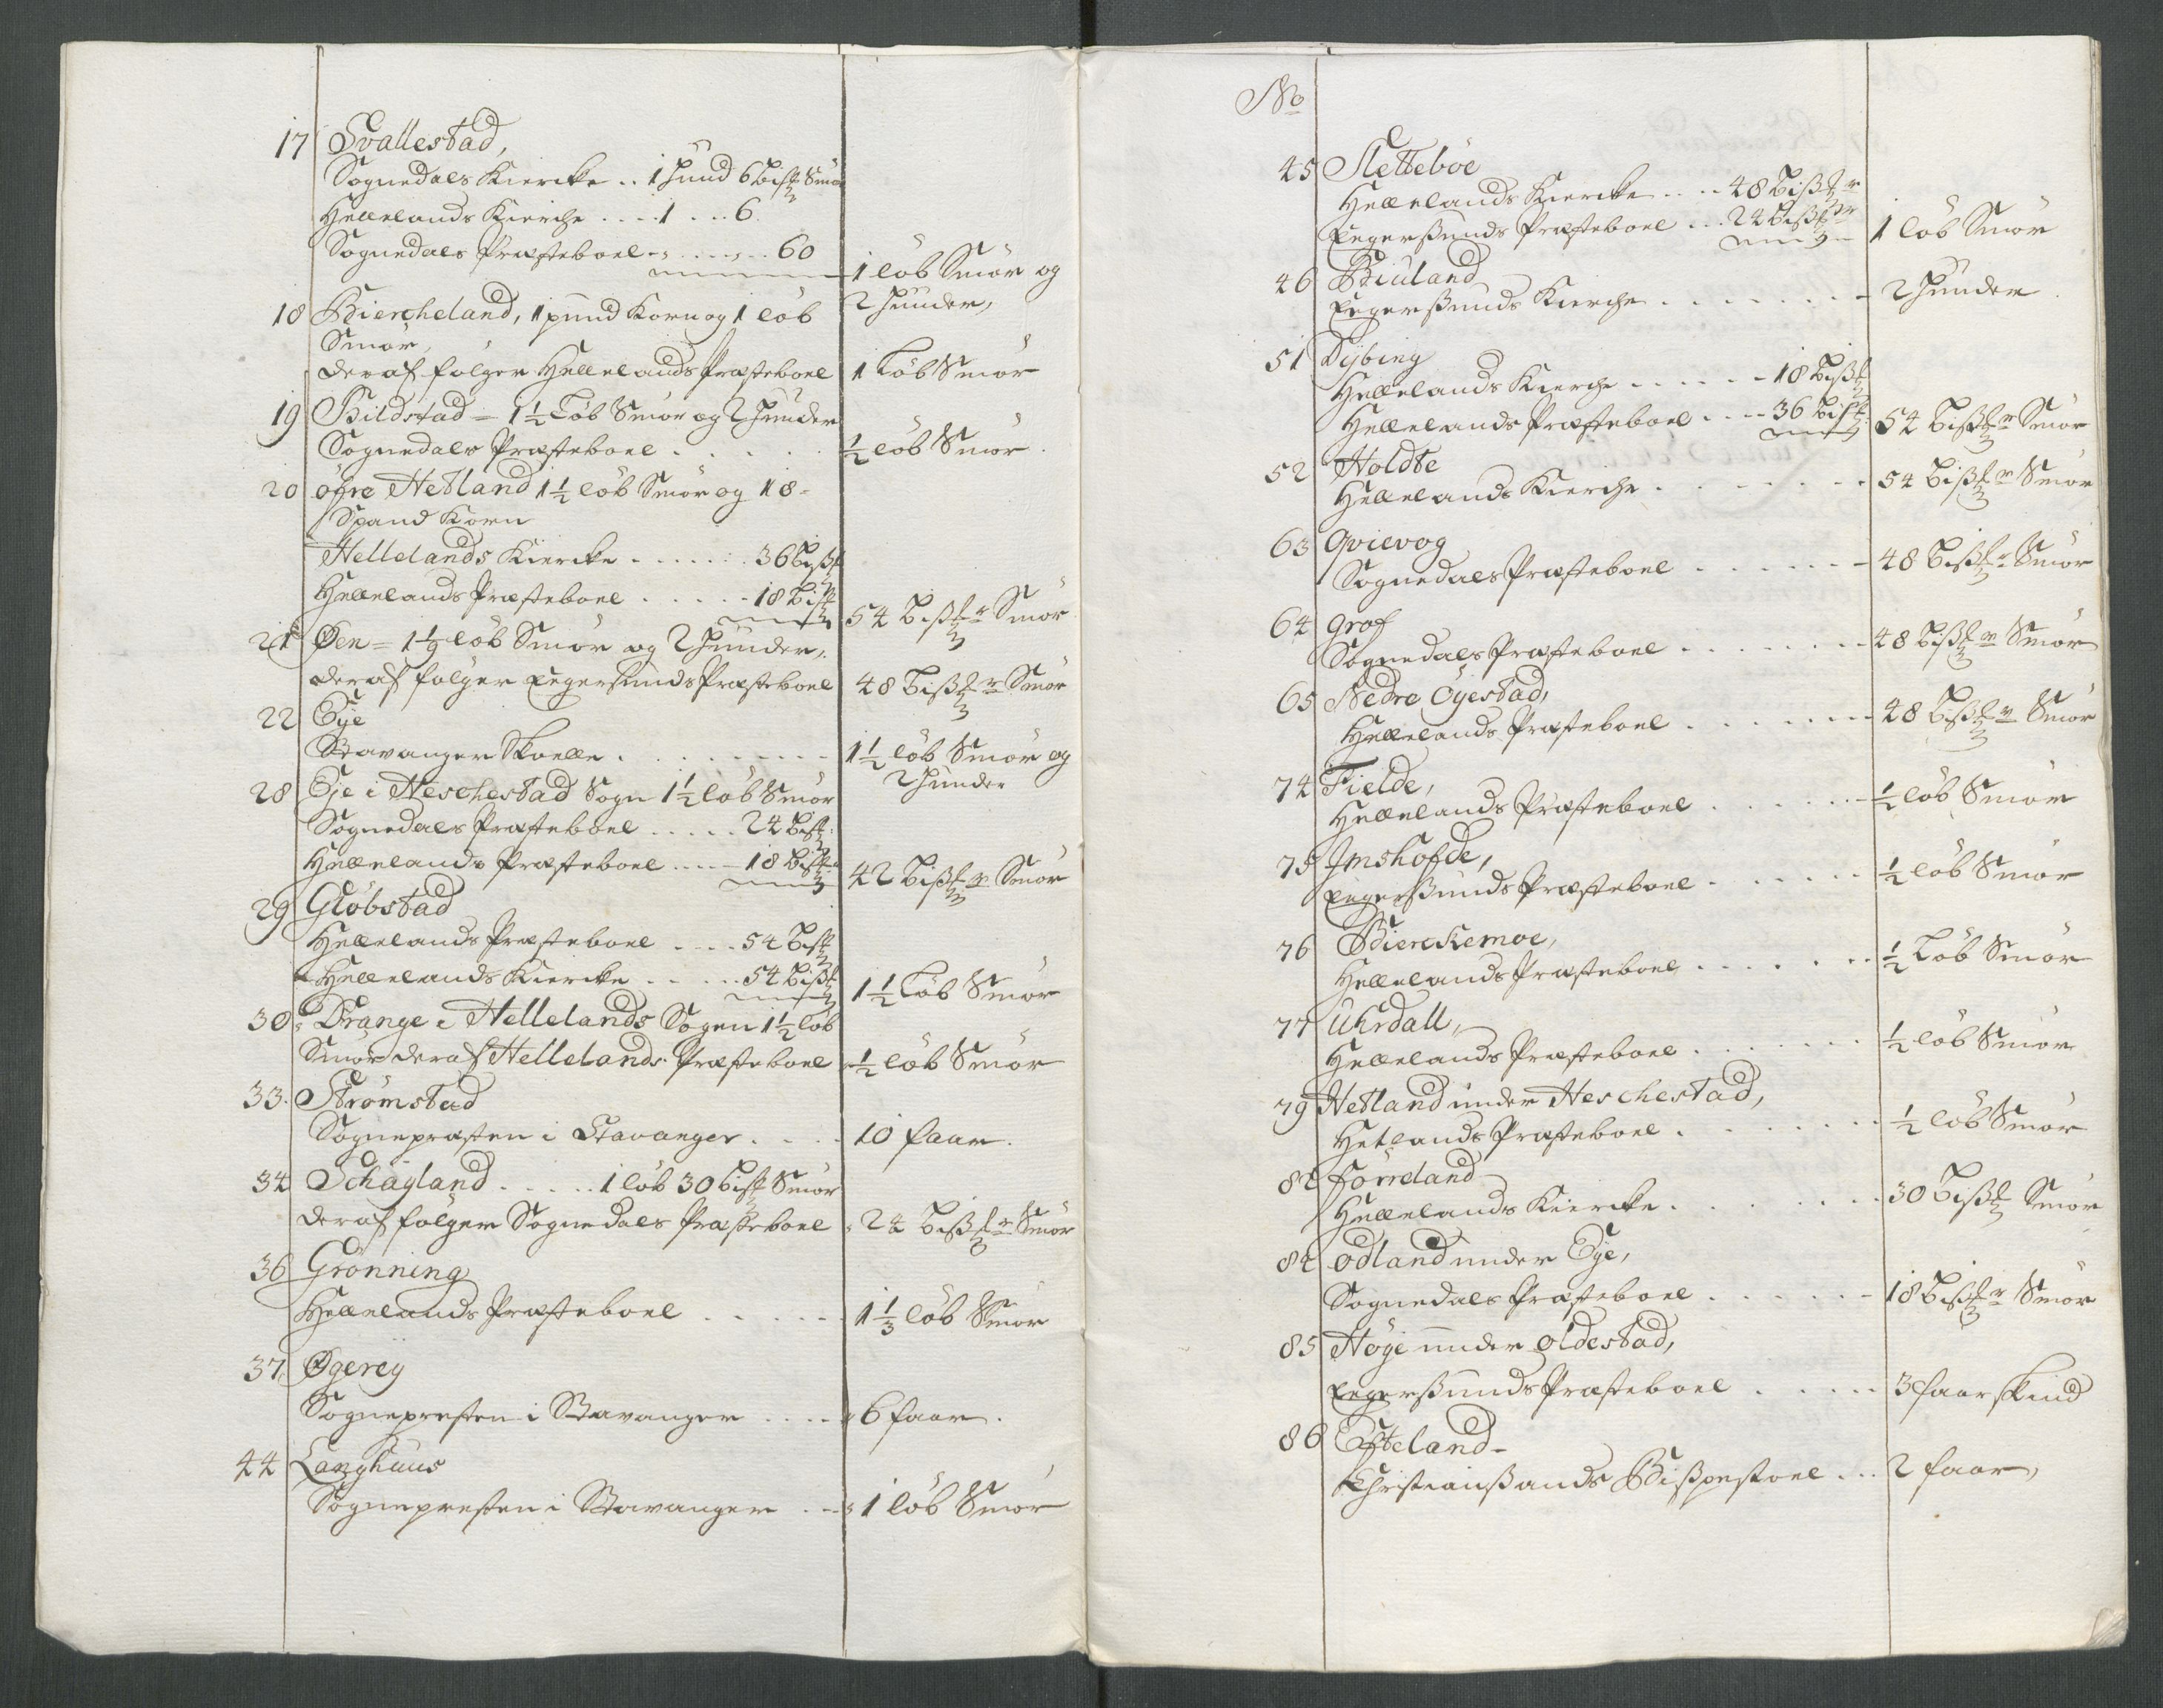 17 Svallestad,
Sognedals Kiercke .. 1 Huud 6 Biß℔ Smör
Hellelands Kierche .... 1 ... 6.
Sognedals Præsteboel ........ 60
1 löb Smör og
2 Huuder,
18 Biercheland, 1 pund Korn og 1 löb
Smör,
deraf fölger Hellelands Præsteboel 1 Löb Smör
19 Bildstad = 1½ Löb Smör og 2 Huuder
Sognedals Præsteboel . . . . . ½ löb Smör.
20 öfre Hetland 1½ löb Smör og 18=
Spand Korn
Hellelands Kiercke ....... 36 Biß℔
Hellelands Præsteboel ...... 18 Biß℔
54 Biß℔r Smör
21 Øen = 1½ löb Smör og 2 Huuder,
deraf fölger Egersunds Præsteboel 48 Biß℔r Smör
22 Eÿe
Stavanger Skoelle . . . . . . . . 1½ löb Smör og
2 Huuder
28 Eje i Heschestad Sogn 1½ löb Smör
Sognedals Præsteboel ..... 24 Biß℔
Hellelands Præsteboel .... 18 Biß℔
42 Biß℔r Smör
29 Glöbstad
Hellelands Præsteboel .... 54 Biß℔
Hellelands Kiercke ..... 54 Biß℔
1½ Löb Smör
30. Drange i Hellelands Sogen 1½ löb
Smör deraf Hellelands Præsteboel ½ löb Smör
33. Strømstad
Sognepræsten i Stavanger . . . . 10 faar.
34 Schägland ..... 1 löb 30 Biß℔ Smör
deraf fölger Sognedals Præsteboel 24 Biß℔r Smör
36 Grönning
Hellelands Præsteboel . . . . . 1⅓ löb Smör
37, Øgereÿ
Sognepresten i Stavanger .... 6 faar.
44 Langhuus
Sognepresten i Stavanger ... 1 löb Smör
No
45 Sletteböe
Hellelands Kiercke .... 48 Biß℔r
Egersunds Præsteboel ... 24 Biß℔r
1 löb Smör
46 Biuland
Egersunds Kierche . . . . . . . 2 Huuder
51 Dÿbing
Hellelands Kierche ...... 18 Biß℔
Hellelands Præsteboel .... 36 Biß℔
54 Biß℔r Smör
52 Holdte
Hellelands Kierche . . . . . . . 54 Biß℔r Smör
63 Qvievog
Sognedals Præsteboel . . . . . . 48 Biß℔r Smör
64 Graf
Sognedals Præsteboel . . . . . . . 48 Biß℔r Smör
65 Nedre Öÿestad,
Hellelands Præsteboel . . . . . . . 48 Biß℔r Smör
74 Fielde,
Hellelands Præsteboel . . . . . . ½ löb Smör
75 Imshofde,
Egersunds Præsteboel . . . . . . ½ löb Smör
76 Bierckemoe,
Hellelands Præsteboel . . . . . . ½ Löb Smör
77 Uhrdall,
Hellelands Præsteboel . . . . . . . ½ löb Smör
79 Hetland under Heschestad,
Hetlands Præsteboel . . . . . . . ½ löb Smör
82 Förreland
Hellelands Kiercke . . . . . . . 30 Biß℔ Smör
84 Odland under Eÿe,
Sognedals Præsteboel . . . . . . 18 Biß℔r Smör
85 Höÿe under Oldestad,
Egersunds Præsteboel . . . . . 3 faar skind
86 Efteland
Christiansands Bißpestoel ... 2 faar,